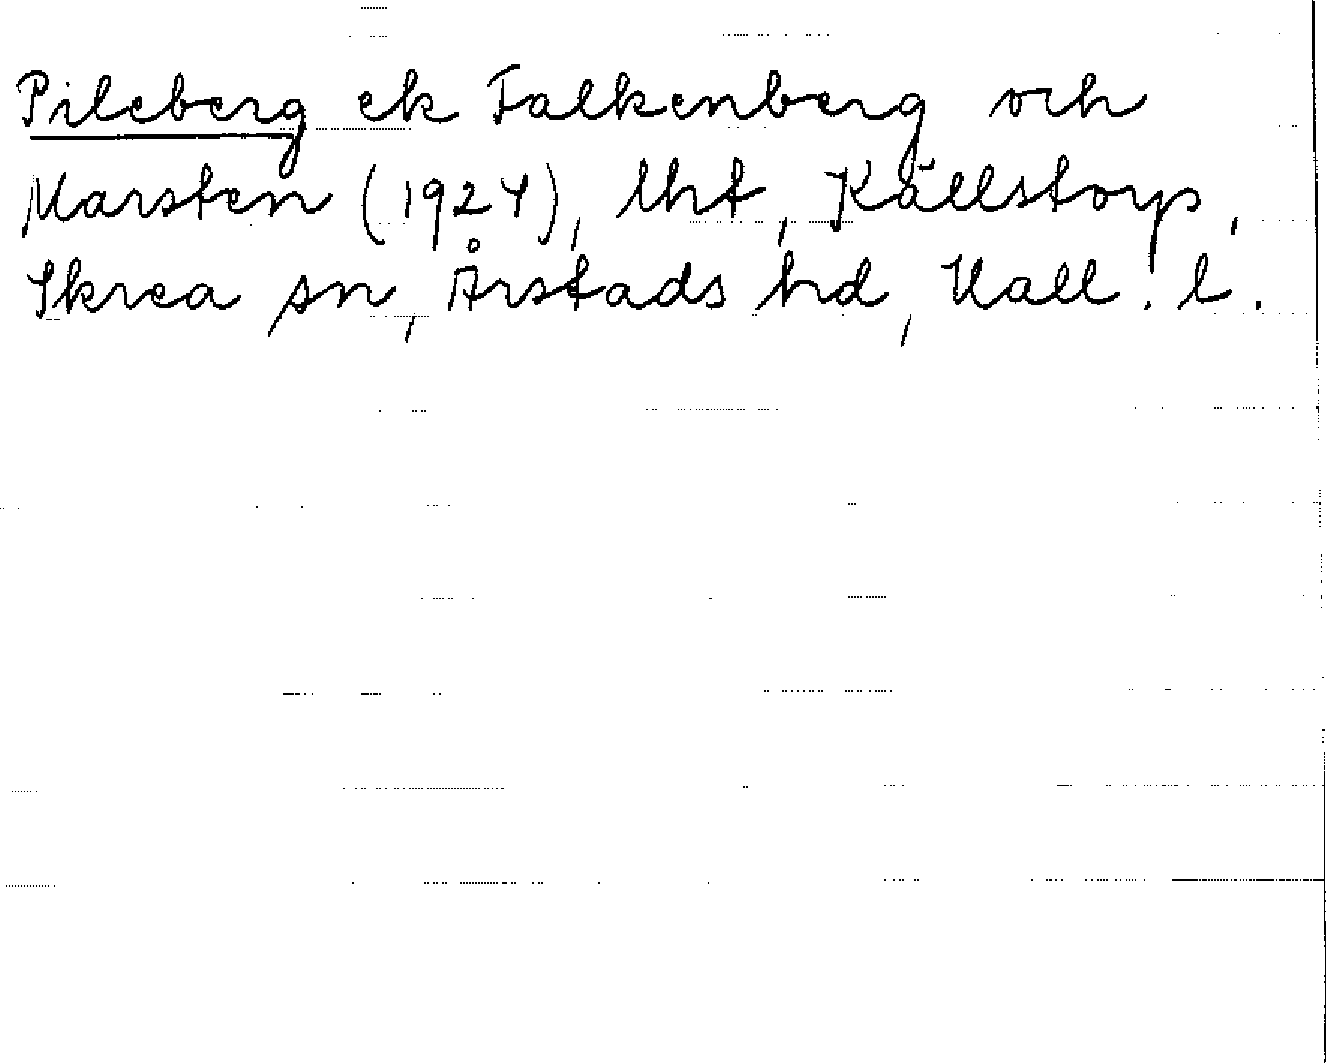 Pileberg ek Falkenberg och
Marsten (1924), lht, Källstorp,
Skrea sn, Årstads hd, Hall. l.